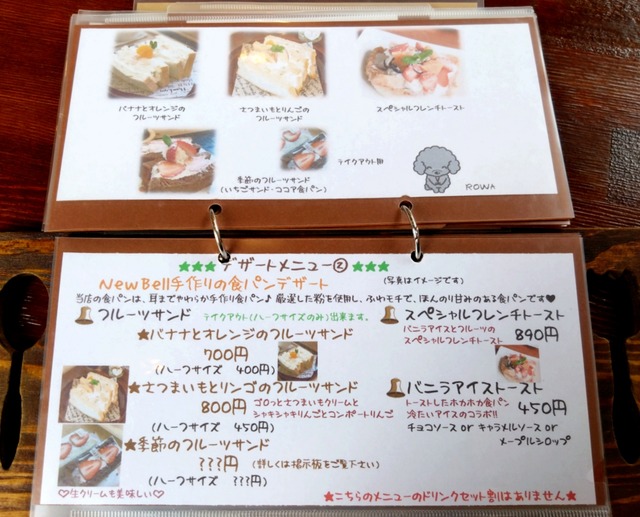 バナナとオレンジの
フルーツサンド
さつまいもとりんごの
フルーツサンド
スペシャルフレンチトースト
季節のフルーツサンド
(いちごサンド・ココア食パン)
テイクアウト用
ROWA
★★★デザートメニュー②★★★
NewBell手作りの食パンデザート
(写真はイメージです)
当店の食パンは、耳までやわらか手作り食パン♪ 厳選した粉を使用し、ふわモチで、ほんのり甘みのある食パンです♥
フルーツサンド
テイクアウト(ハーフサイズのみ)出来ます。
★バナナとオレンジのフルーツサンド
700円
(ハーフサイズ 400円)
★さつまいもとリンゴのフルーツサンド
800円
(ハーフサイズ 450円)
ゴロっとさつまいもクリームと
シャキシャキりんごとコンポートりんご
★季節のフルーツサンド
???円
(詳しくは掲示板をご覧下さい)
(ハーフサイズ ???円)
♡生クリームも美味しい♡
スペシャルフレンチトースト
バニラアイスとフルーツの
スペシャルフレンチトースト
890円
バニラアイストースト
トーストしたホカホカ食パン
冷たいアイスのコラボ!!
450円
チョコソース or キャラメルソース or
メープルシロップ
★こちらのメニューのドリンクセット割はありません★